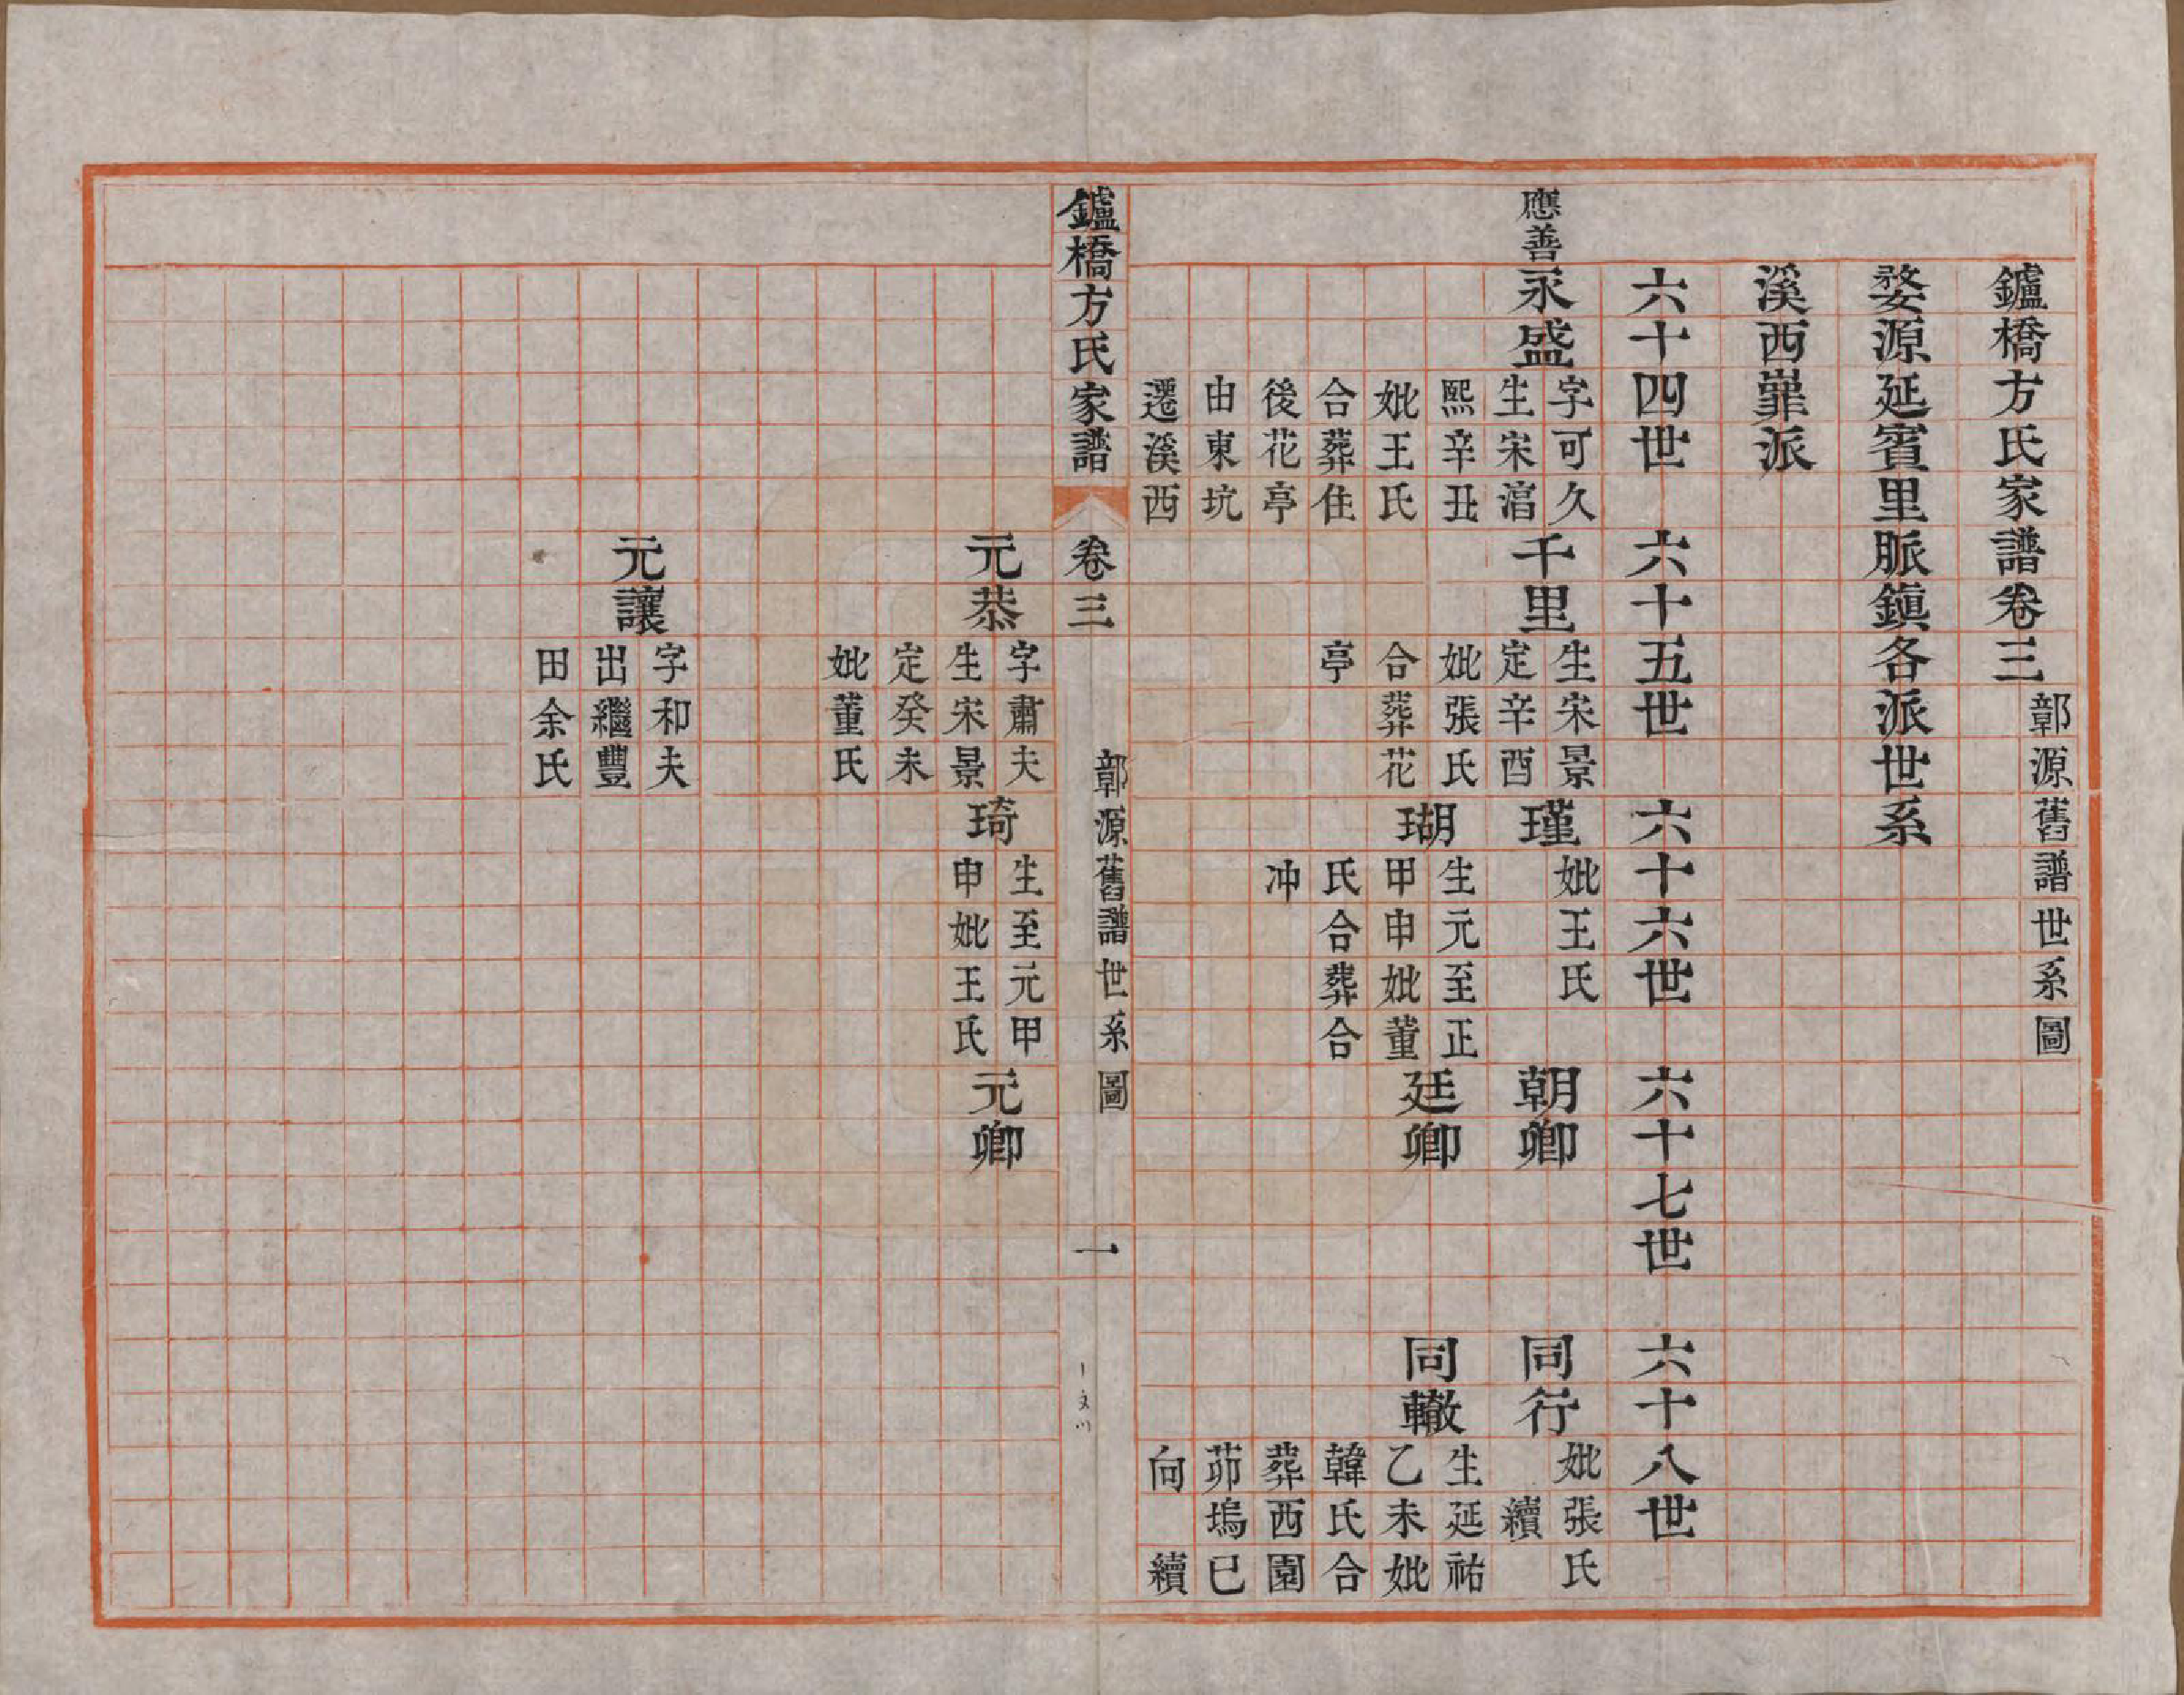 鑪橋方氏家譜卷三
鄣源舊譜世系圖
婺源延賓里脈鎮各派世系
溪西嶵派
六十四世 六十五世 六十六世 六十七世 六十八世
應善
永盛
字可久
生宋淳
熙辛丑
妣王氏
合葬住
後花亭
由東坑
遷溪西
千里
生宋景
定辛酉
妣張氏
合葬花
亭
瑾
妣王氏
朝卿
同行
妣張氏
續
瑚
生元至正
甲申妣董
氏合葬合
冲
廷卿
同轍
生延祐
乙未妣
韓氏合
葬西園
茆塢巳
向 續
鑪橋方氏家譜 卷三 鄣源舊譜世系圖 一
元恭
字肅夫
生宋景
定癸未
妣董氏
琦
生至元甲
申妣王氏
元卿
元讓
字和夫
出繼豐
田余氏